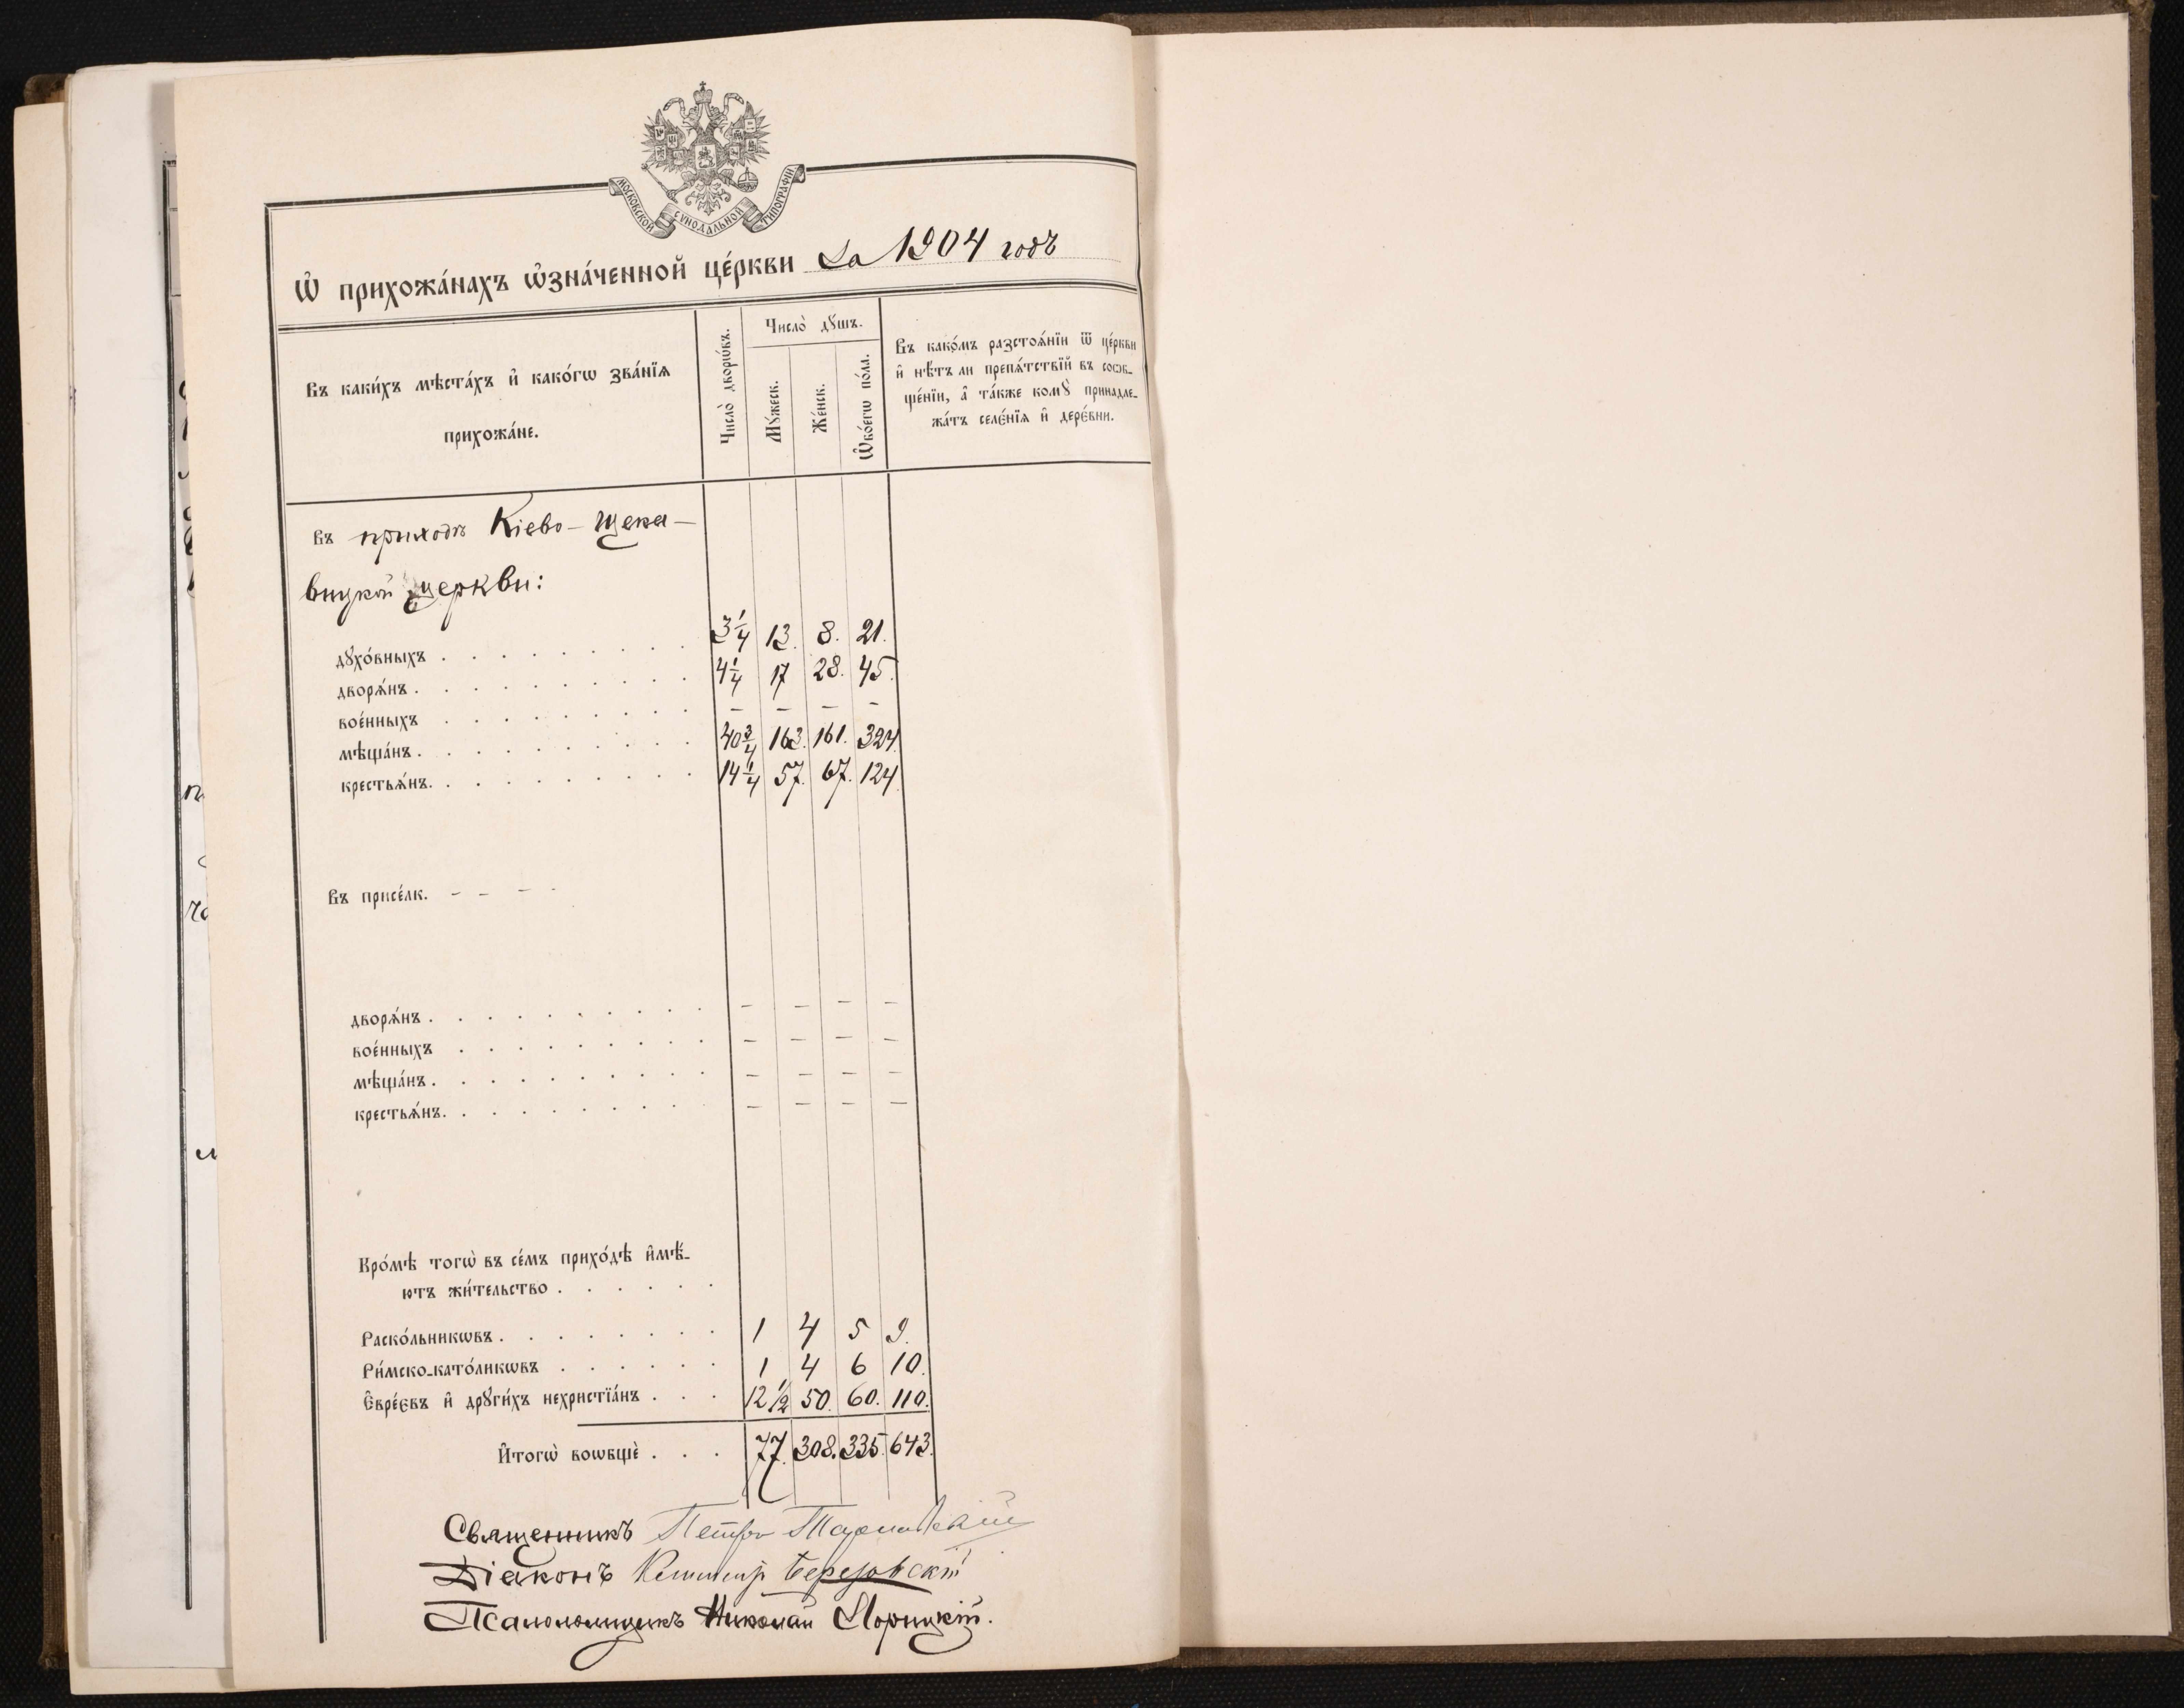 МОСКОВСКОЙ СѴНОДАЛЬНОЙ ТИПОГРАФІИ
Ѡ҆ прихожа́нахъ ѡ҆зна́ченной це́ркви За 1904 годъ
Въ каки́хъ мѣста́хъ и҆ како́гѡ зва́нїѧ
прихожа́не.
Число̀ дворѡ́въ.
Число̀ дꙋ́шъ.
Мꙋ́жеск.
Же́нск.
Ѻ҆бо́егѡ по́ла.
Въ како́мъ разстоѧ́нїи ѿ це́ркви
и҆ нѣ́тъ ли препѧ́тствїй въ соѻб-
ще́нїи, а҆ та́кже комꙋ̀ принадле-
жа́тъ селє́нїѧ и҆ дерє́вни.
Въ приходѣ Кіево-Щека-
вицкой церкви:
дꙋхо́вныхъ . . . . . . . . . 3 1/4 13. 8. 21.
дворѧ́нъ . . . . . . . . . . 4 1/4 17 28. 45.
вое́нныхъ . . . . . . . . . – – – –
мѣща́нъ . . . . . . . . . . 40 3/4 163. 161. 324.
крестьѧ́нъ. . . . . . . . . . 14 1/4 57. 67. 124.
Въ присе́лк. – – – -
дворѧ́нъ . . . . . . . . . . – – – –
вое́нныхъ . . . . . . . . . – – – –
мѣща́нъ . . . . . . . . . . – – – –
крестьѧ́нъ. . . . . . . . . – – – –
Кро́мѣ тогѡ̀ въ се́мъ прихо́дѣ и҆мѣ́-
ютъ жи́тельство . . . . . .
Раско́льникѡвъ . . . . . . . . 1 4 5 9.
Ри́мско-като́ликѡвъ . . . . . . 1 4 6 10.
Є҆вре́євъ и҆ дрꙋги́хъ нехристїа́нъ . . . 12 1/2 50. 60. 110.
И҆тогѡ̀ воѻбщѐ . . . 77. 308. 335. 643.
Священникъ Петръ
Діаконъ Березовскій
Псаломщикъ Николай Юрицкій.